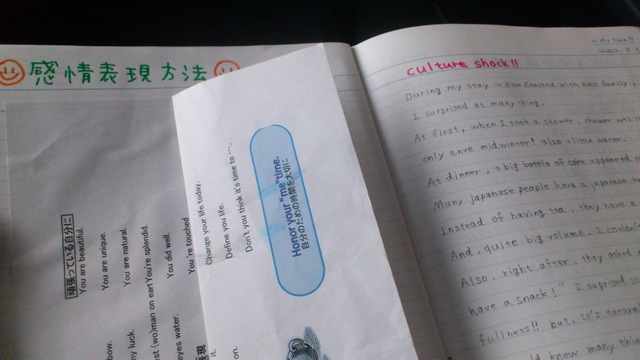 感情表現方法
頑張っている自分に
You are beautiful.
You are unique.
You are natural.
You're splendid.
You did well.
You're touched
eyes water.
Change your life today.
Define you life.
Don't you think it's time to ….
Honor your "me" time.
自分のための時間を大切に
culture shock!!
During my stay in New Zealand with host family
I surprised at many thing.
At first, when I took a shower, shower was
only enve midwinter! also a little water.
At dinner, a big bottle of coke appeared.
Many japanese people have a japanese
Instead of having tea, they have a
And, quite big volume. I couldn't
Also, right after, they asked
have a snack!" I suprised
fullness!! but, it's natural
know many thin